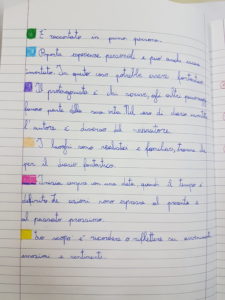 E' raccontato in prima persona.
Riporta esperienze personali e può anche essere
inventato. In questo caso potrebbe essere fantastico.
Il protagonista è chi scrive, gli altri personaggi
fanno parte della sua vita. Nel caso di diario inventato
l'autore è diverso dal narratore.
I luoghi sono realistici e familiari, tranne che
per il diario fantastico.
Inizia sempre con una data, quindi il tempo è
definito. Le azioni sono espresse al presente e
al passato prossimo.
Lo scopo è ricordare o riflettere su avvenimenti
emozioni e sentimenti.